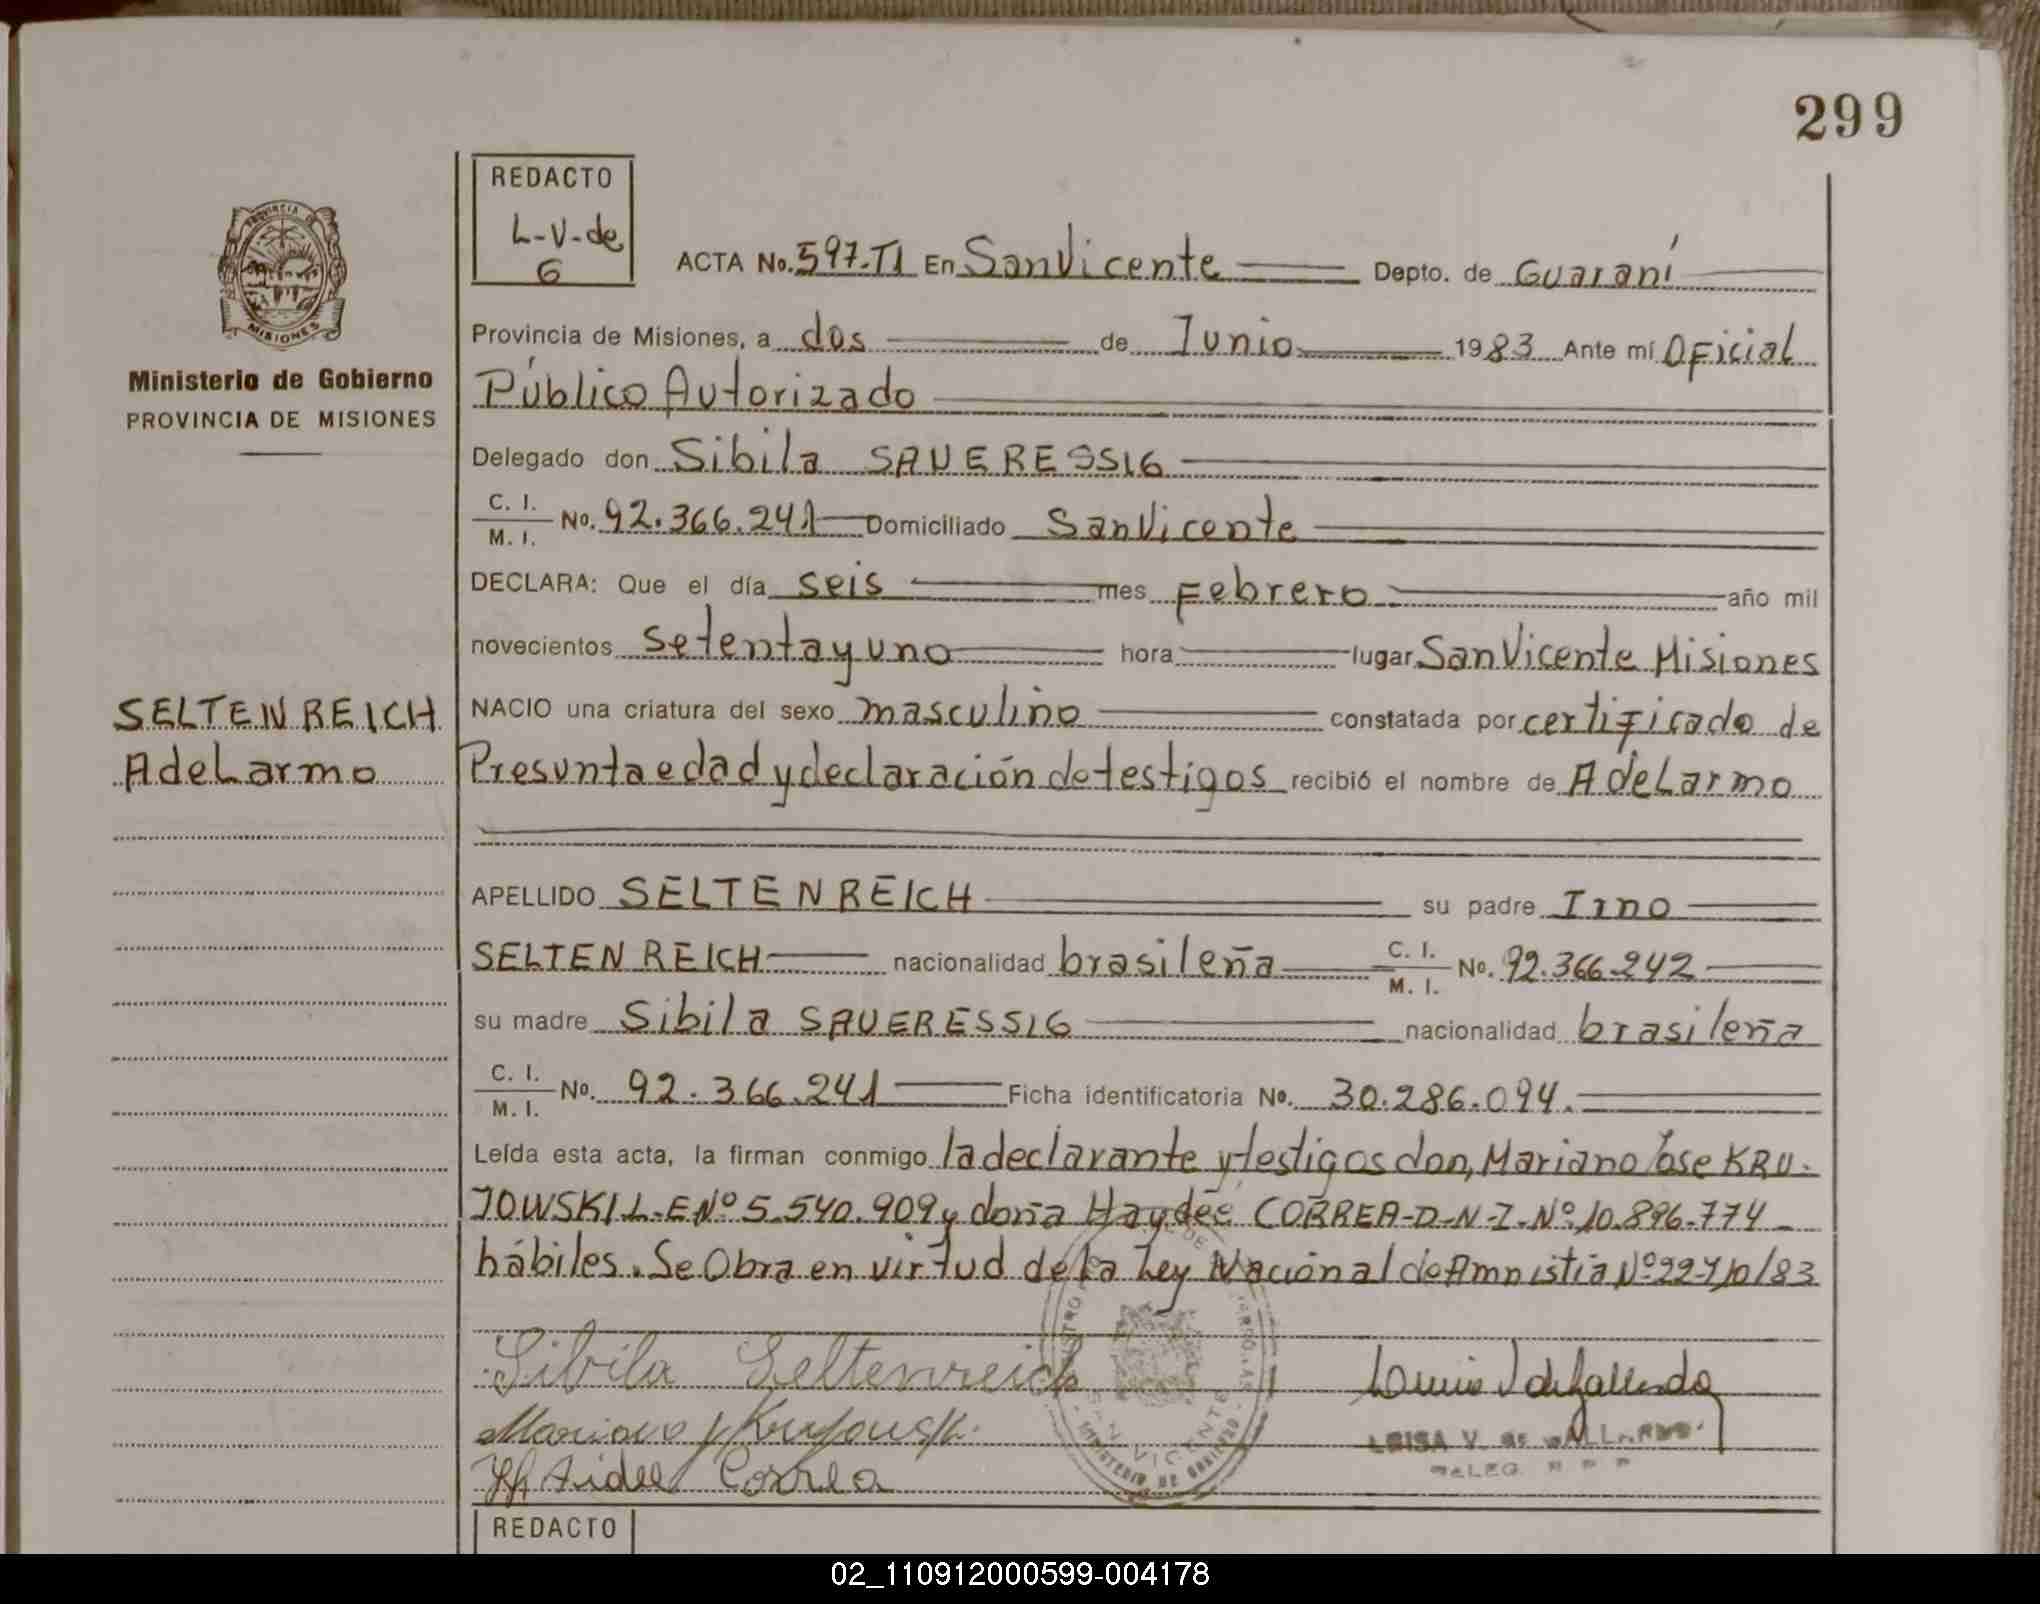 299
REDACTO
L-V-de
G
PROVINCIA DE
MISIONES
Ministerio de Gobierno
PROVINCIA DE MISIONES
ACTA No. 597-T1 En San Vicente Depto. de Guaraní
Provincia de Misiones, a dos de Junio 1983 Ante mí Oficial
Público Autorizado
Delegado don Sibila SAUERESSIG
C. I. / M. I. No. 92.366.241 Domiciliado San Vicente
DECLARA: Que el día seis mes Febrero año mil
novecientos setenta y uno hora lugar San Vicente Misiones
SELTENREICH
AdeLarmo
NACIO una criatura del sexo masculino constatada por certificado de
Presunta edad y declaración de testigos recibió el nombre de AdeLarmo
APELLIDO SELTENREICH su padre Irno
SELTENREICH nacionalidad brasileña C. I. / M. I. No. 92.366.242
su madre Sibila SAUERESSIG nacionalidad brasileña
C. I. / M. I. No. 92.366.241 Ficha identificatoria No. 30.286.094.
Leída esta acta, la firman conmigo la declarante y testigos don, Mariano Jose KRU-
JOWSKI L-E Nº 5.540.909 y doña Haydée CORREA-D-N-I-Nº 10.896.774
hábiles. Se Obra en virtud de la Ley Nacional de Amnistia Nº 22.710/83
Sibila Seltenreich
Mariano J Krujouski
Haidee Correa
SAN VICENTE
MINISTERIO DE GOBIERNO
LUISA V. de GALLARDO
DELEG. R P P
REDACTO
02_110912000599-004178